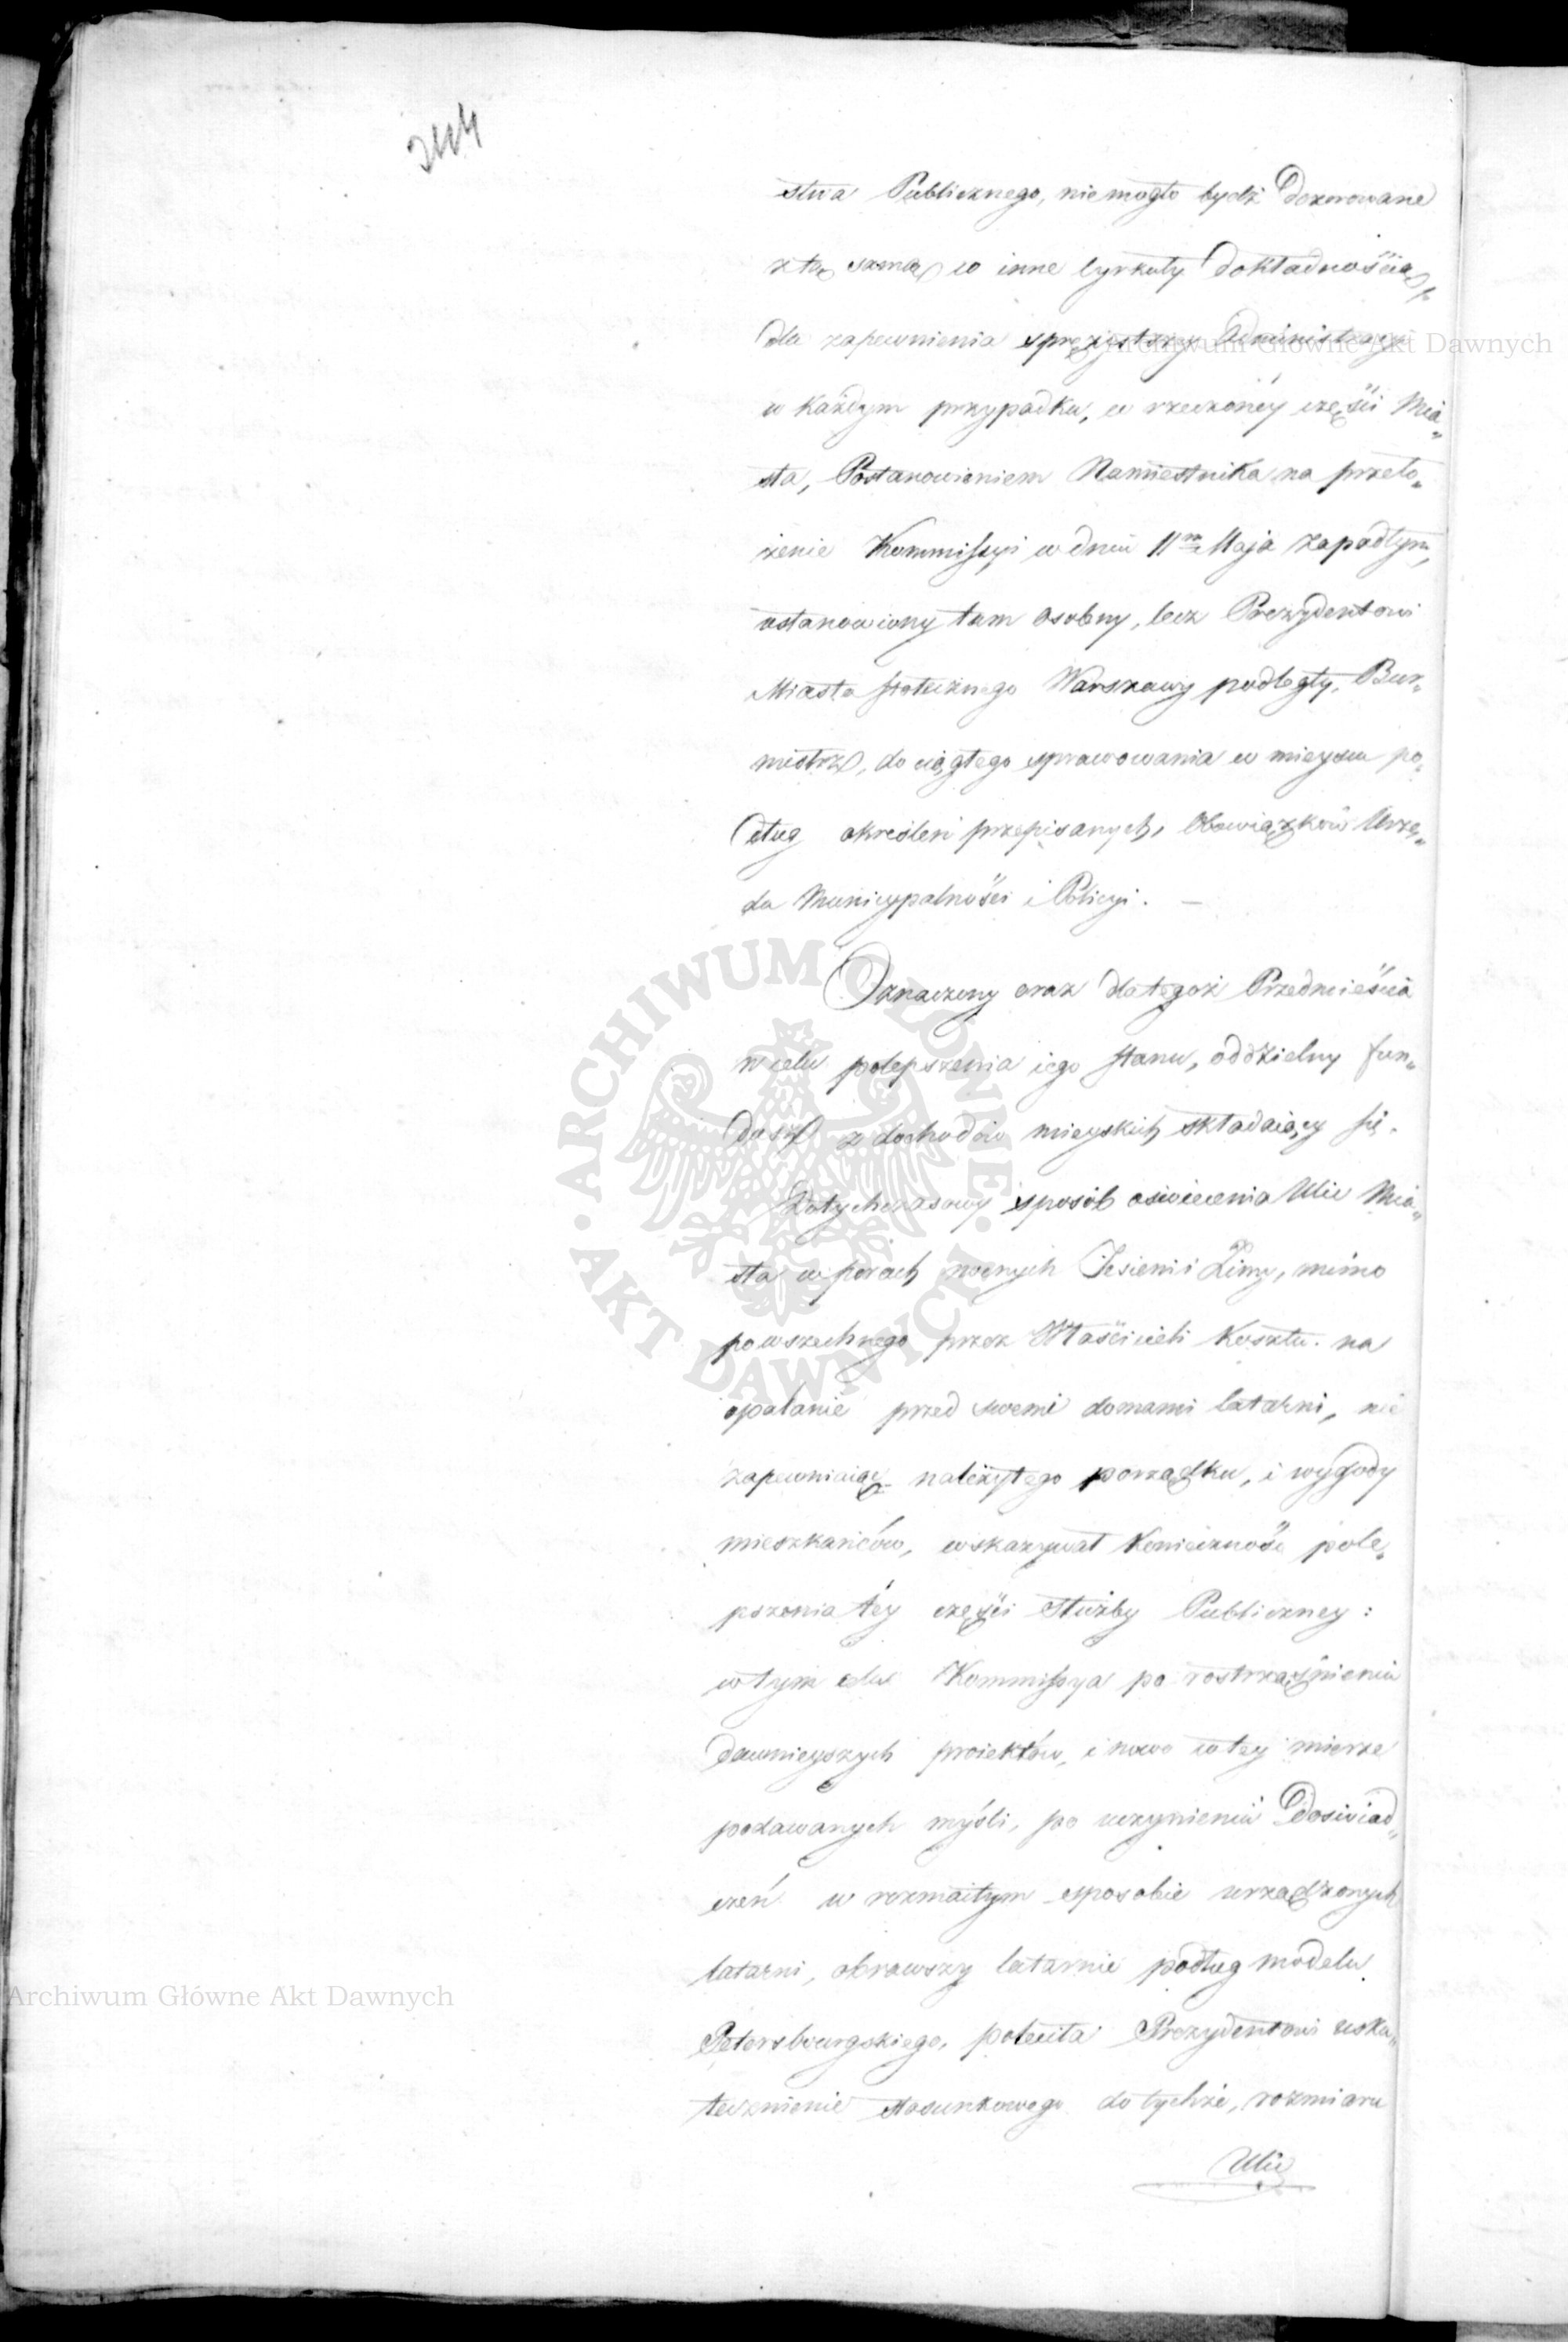 244
stwa Publicznego, niemogło bydź dozorowane
z tą samą co inne Cyrkuły dokładnością,
dla zapewnienia sprężystszey Administracyi
w każdym przypadku, w rzeczonéy części Mia„
sta, Postanowieniem Namiestnika na przeło„
żenie Kommissyi w dniu 11m Maja zapadłym,
ustanowiony tam osobny, lecz Prezydentowi
Miasta stołecznego Warszawy podległy, Bur„
mistrz, do ciągłego sprawowania w mieyscu po„
dług określeń przepisanych, Obowiązków Urzę„
du Municypalności i Policyi. —
Oznaczony oraz dla tegoż Przedmieścia
w celu polepszenia iego stanu, oddzielny fun„
dusz z dochodów mieyskich składaiący się.
Dotychczasowy sposób oświecenia Ulic Mia„
sta w porach nocnych Jesieni i Zimy, mimo
powszechnego przez Właścicieli Kosztu na
opalanie przed swemi domami latarni, nie
zapewniaiąc należytego porządku, i wygody
mieszkańców, wskazywał Konieczność pole„
pszenia téy części służby Publiczney:
w tym celu Kommissya po rostrząśnieniu
dawnieyszych proiektów, i nowo w tey mierze
podawanych myśli, po uczynieniu doświad„
czeń w rozmaitym sposobie urządzonych
latarni, obrawszy latarnie podług modelu
Petersburgskiego, poleciła Prezydentowi usku„
tecznienie stosunkowego do tychże, rozmiaru
Ulic
Archiwum Główne Akt Dawnych
ARCHIWUM GŁÓWNE · AKT DAWNYCH ·
Archiwum Główne Akt Dawnych